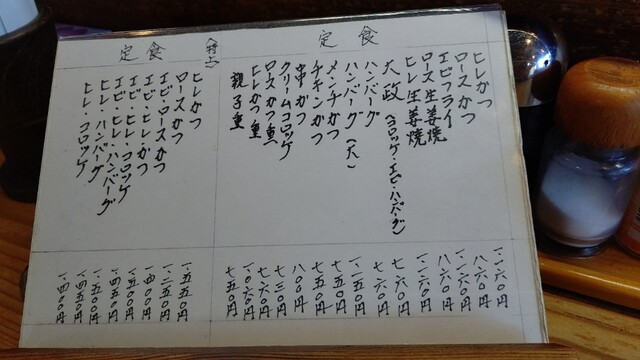 定食
ヒレかつ 一、一六〇円
ロースかつ 八六〇円
エビフライ 一、一六〇円
ロース生姜焼 八六〇円
ヒレ生姜焼 一、一六〇円
大政(コロッケ・エビ・ハンバーグ) 七六〇円
ハンバーグ 七六〇円
ハンバーグ(大) 一、一五〇円
メンチかつ 七五〇円
チキンかつ 七五〇円
串かつ 八〇〇円
クリームコロッケ 七三〇円
ロースかつ重 七六〇円
ヒレかつ重 一、〇六〇円
親子重 七五〇円
定食(特上)
ヒレかつ 一、五五〇円
ロースかつ 一、二五〇円
エビ・ロースかつ 一、四〇〇円
エビ・ヒレ・かつ
エビ・ヒレ・コロッケ 一、四五〇円
エビ・ヒレ・ハンバーグ 一、五〇〇円
ヒレ・ハンバーグ 一、四五〇円
ヒレ・コロッケ 一、四〇〇円